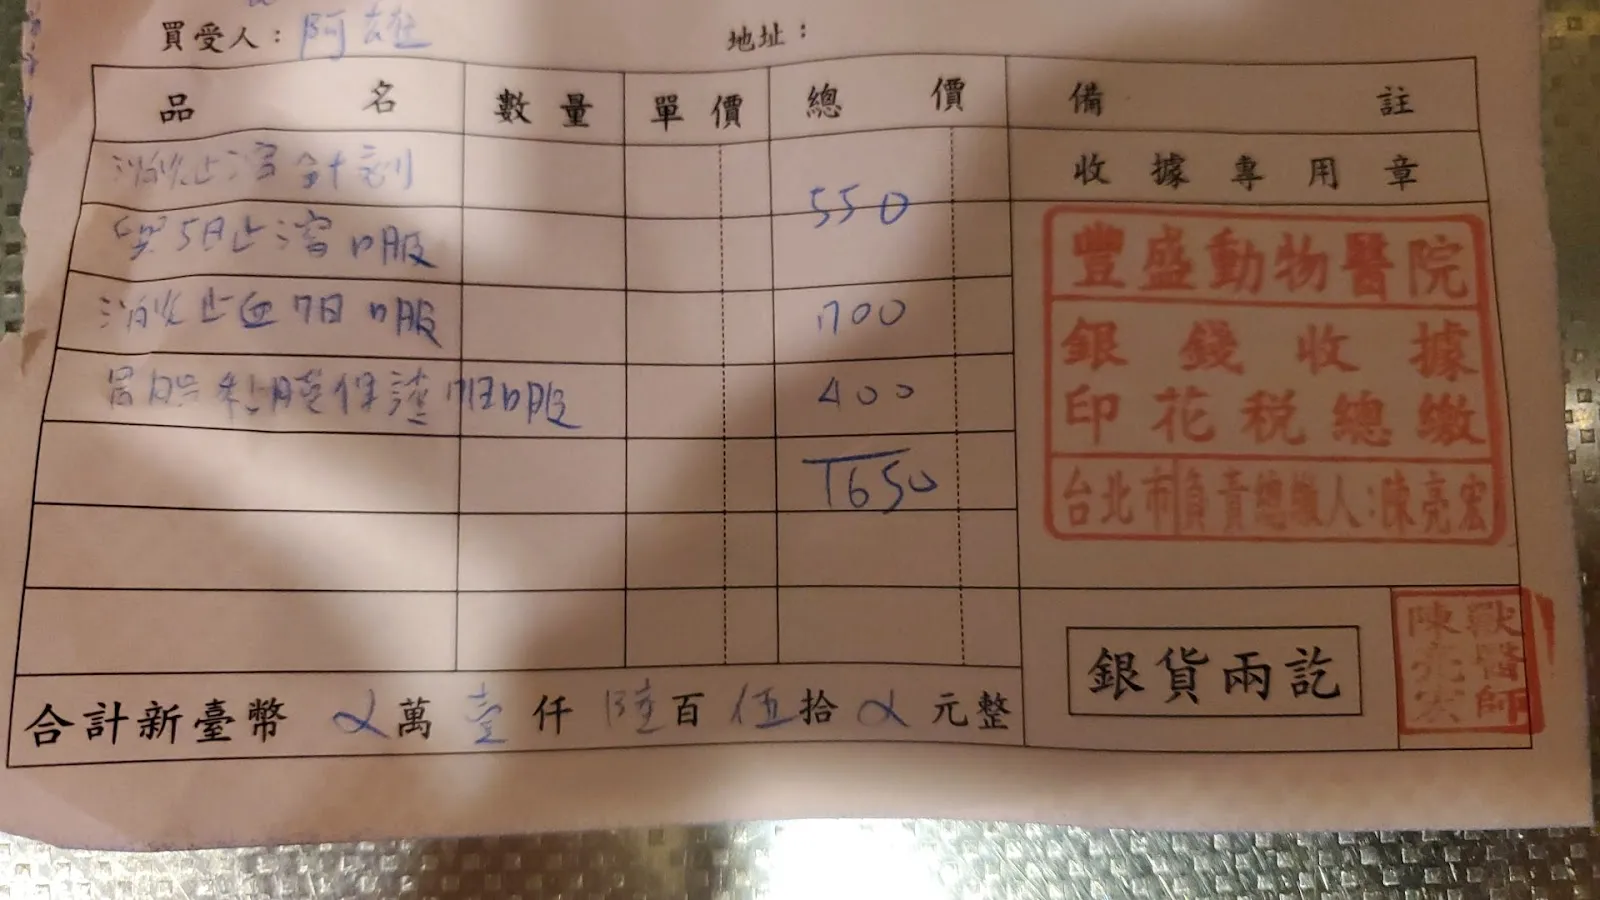 買受人：阿雄 地址：
品名 數量 單價 總價 備註
消炎止瀉針劑 550 收據專用章
5日止瀉口服
消炎止血7日口服 700
胃腸粘膜保護 7日口服 400
1650
豐盛動物醫院
銀錢收據
印花稅總繳
台北市負責總繳人：陳亮宏
合計新臺幣 萬壹仟陸百伍拾 元整
銀貨兩訖
獸醫師
陳亮宏